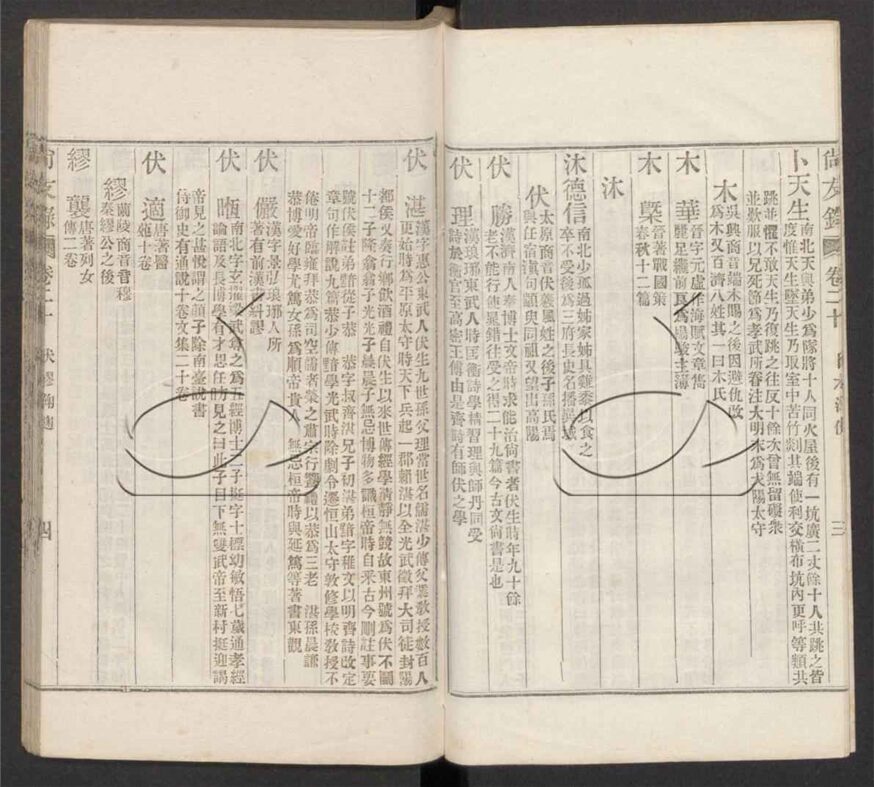 尚友錄 卷二十 三
卜天生
南北天與弟少爲隊將十人同火屋後有一坑廣二丈餘十人共跳之皆
度惟天生墜天生乃取室中苦竹剡其端使利交橫布坑內更呼等類共
跳並懼不敢天生乃復跳之往反十餘次曾無留礙衆
並歎服以兄死節爲孝武所眷注大明末爲太陽太守
木
吳興商音端木賜之後因避仇改
爲木又百濟八姓其一曰木氏
木華
晉字元虛作海賦文章雋
麗足繼前良爲楊駿主簿
木槩
晉著戰國策
春秋十二篇
沐
沐德信
南北少孤過姊家姊具雞黍以食之
卒不受後爲三府長史名播
伏
太原商音伏羲風姓之後子孫氏焉
與任宿須句顓臾同祖又望出高陽
伏勝
漢濟南人秦博士文帝時求能治尙書者伏生時年九十餘
老不能行使晁錯往受之得二十九篇今古文尙書是也
伏理
漢琅琊東武人時匡衡詩學精習理與師丹同受
詩於衡官至高密王傅由是齊詩有師伏之學
伏湛
漢字惠公東武人伏生九世孫父理當世名儒湛少傳父業敎授數百人
更始時爲平原太守時天下兵起一郡賴湛以全光武徵拜大司徒封陽
都侯又奏行鄕飮酒禮自伏生以來世傳經學淸靜無競故東州號爲伏不鬭
十二子隆翕翕子光光子晨晨子無忌博物多識桓帝時自采古今刪註事要
號伏侯註弟黯從子恭 恭字叔齊湛兄子初湛弟黯字稚文以明齊詩改定
章句作解說九篇恭少傳黯學光武時除劇令遷恒山太守敦修學校敎授不
倦明帝臨雍拜恭爲司空儒者榮之肅宗行饗禮以恭爲三老 湛孫晨謙
恭博愛好學尤篤女孫爲順帝貴人 無忌桓帝時與延篤等著書東觀
伏儼
漢字景弘琅琊人所
著有前漢糾謬
伏暅
南北字玄曜梁武尊之爲五經博士二子挺字士標幼敏悟七歲通孝經
論語及長博學有才思任昉見之曰此子日下無雙武帝至新村挺迎謁
帝見之甚悅謂之顏子除南臺說書
侍御史有通說十卷文集二十卷
伏適
唐著醫
苑十卷
繆
蘭陵商音音穆
秦繆公之後
繆襲
唐著列女
傳二卷
尚友錄 卷二十 伏繆 四